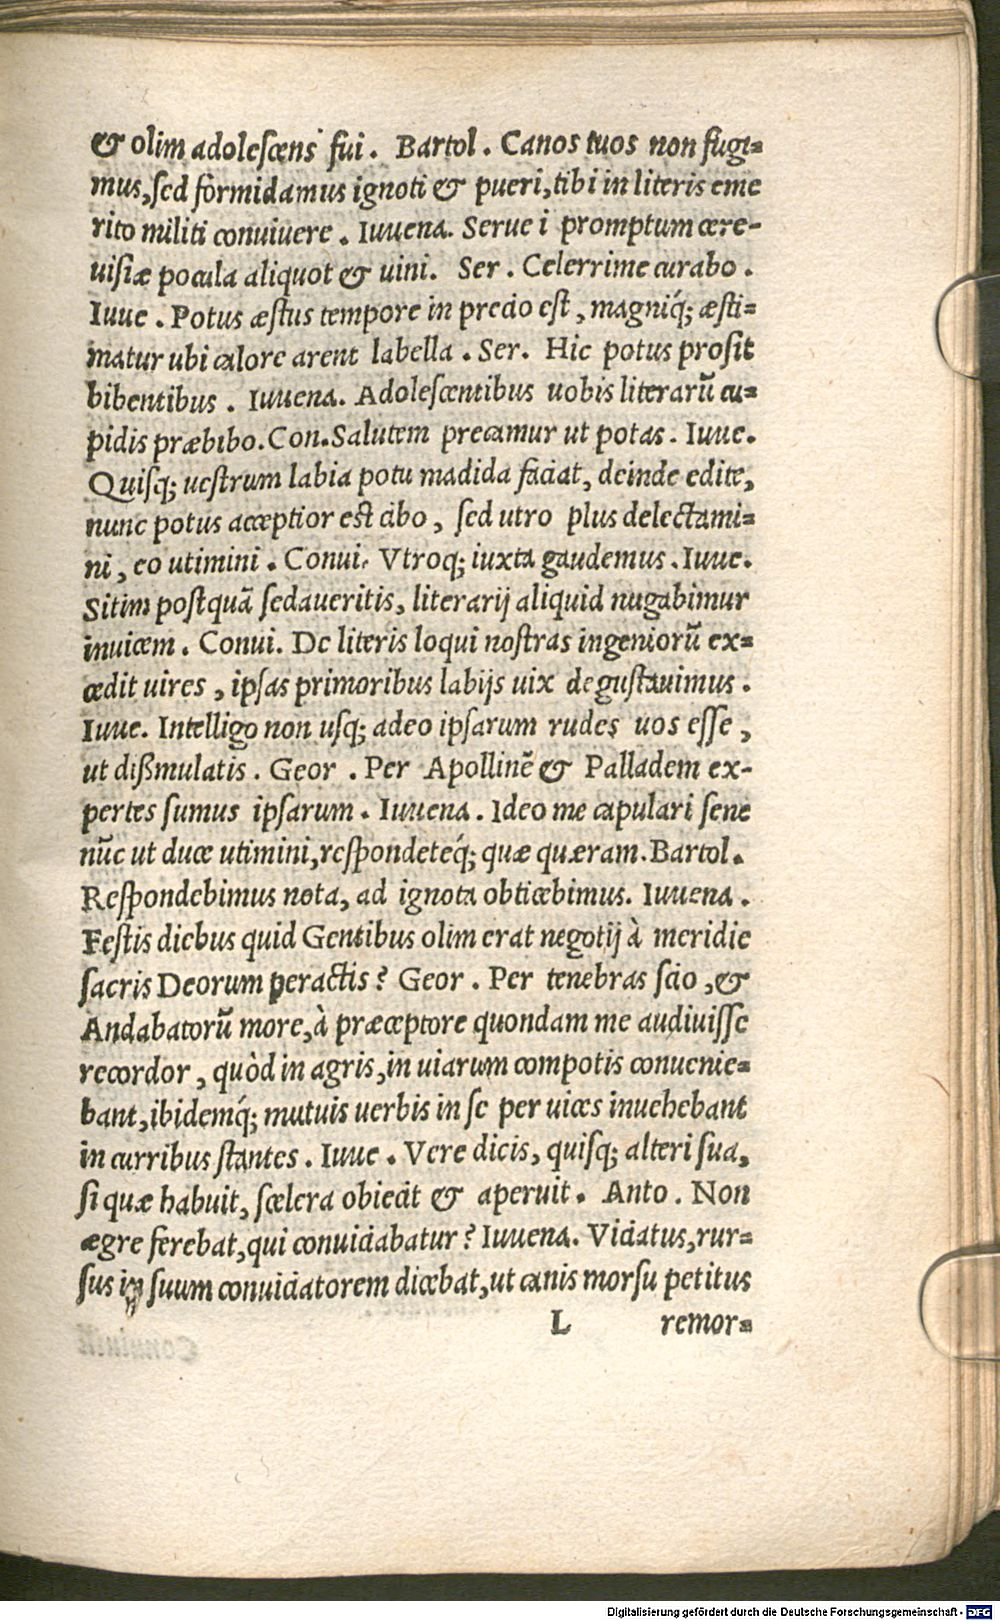 & olim adoleſcens fui. Bartol. Canos tuos non fugi=
mus, ſed formidamus ignoti & pueri, tibi in literis eme
rito militi conuiuere. Iuuena. Serue i promptum cere-
uiſiæ pocula aliquot & uini. Ser. Celerrime curabo.
Iuue. Potus æſtus tempore in precio eſt, magniq́; æſti=
matur ubi calore arent labella. Ser. Hic potus proſit
bibentibus. Iuuena. Adoleſcentibus uobis literarũ cu=
pidis præbibo. Con. Salutem precamur ut potas. Iuue.
Quiſq; ueſtrum labia potu madida faciat, deinde edite,
nunc potus acceptior eſt cibo, ſed utro plus delectami=
ni, eo utimini. Conui. Vtroq; iuxta gaudemus. Iuue.
Sitim poſtquã ſedaueritis, literarij aliquid nugabimur
inuicem. Conui. De literis loqui noſtras ingeniorũ ex=
cedit uires, ipſas primoribus labijs uix deguſtauimus.
Iuue. Intelligo non uſq; adeo ipſarum rudes uos eſſe,
ut dißimulatis. Geor. Per Apollinẽ & Palladem ex-
pertes ſumus ipſarum. Iuuena. Ideo me capulari ſene
nũc ut duce utimini, reſpondeteq́; quæ quæram. Bartol.
Reſpondebimus nota, ad ignota obticebimus. Iuuena.
Feſtis diebus quid Gentibus olim erat negotij à meridie
ſacris Deorum peractis? Geor. Per tenebras ſcio, &
Andabatorũ more, à præceptore quondam me audiuiſſe
recordor, quòd in agris, in uiarum compotis conuenie=
bant, ibidemq́; mutuis uerbis in ſe per uices inuehebant
in curribus ſtantes. Iuue. Vere dicis, quiſq; alteri ſua,
ſi quæ habuit, ſcelera obiecit & aperuit. Anto. Non
ægre ferebat, qui conuiciabatur? Iuuena. Viciatus, rur=
ſus in ſuum conuiciatorem dicebat, ut canis morſu petitus
L remor=
Digitalisierung gefördert durch die Deutsche Forschungsgemeinschaft - DFG